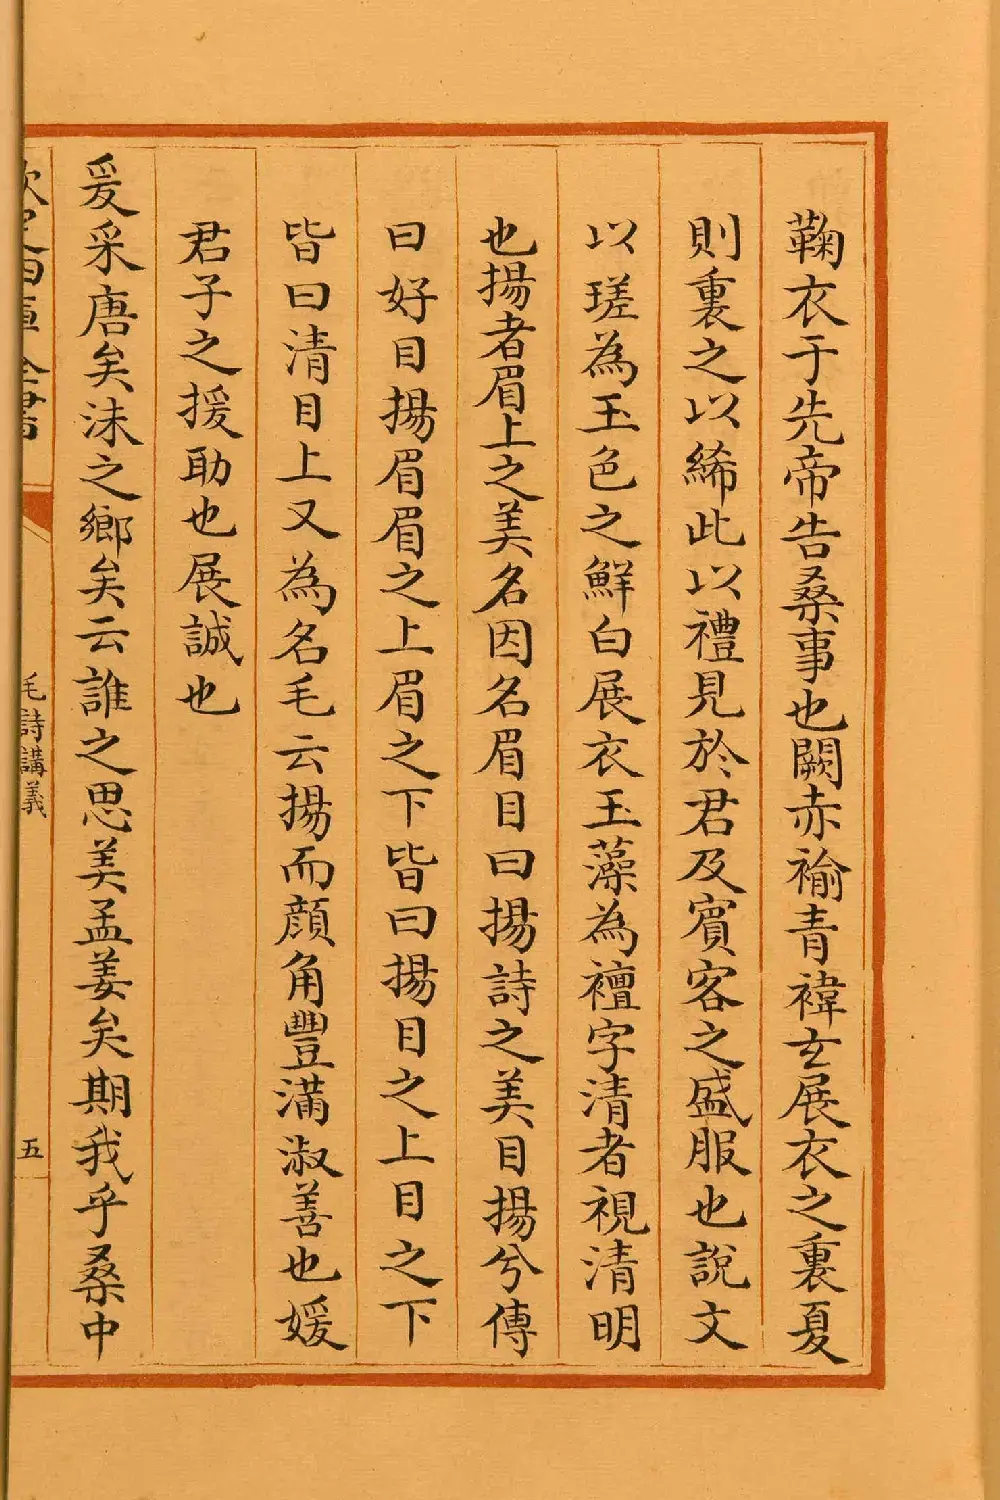 鞠衣于先帝告桑事也闕赤褕青褘玄展衣之裏夏
則裏之以絺此以禮見於君及賓客之盛服也說文
以瑳為玉色之鮮白展衣玉藻為襢字清者視清明
也揚者眉上之美名因名眉目曰揚詩之美目揚兮傳
曰好目揚眉眉之上眉之下皆曰揚目之上目之下
皆曰清目上又為名毛云揚而顔角豐滿淑善也媛
君子之援助也展誠也
爰采唐矣沬之鄉矣云誰之思美孟姜矣期我乎桑中
欽定四庫全書
毛詩講義
五